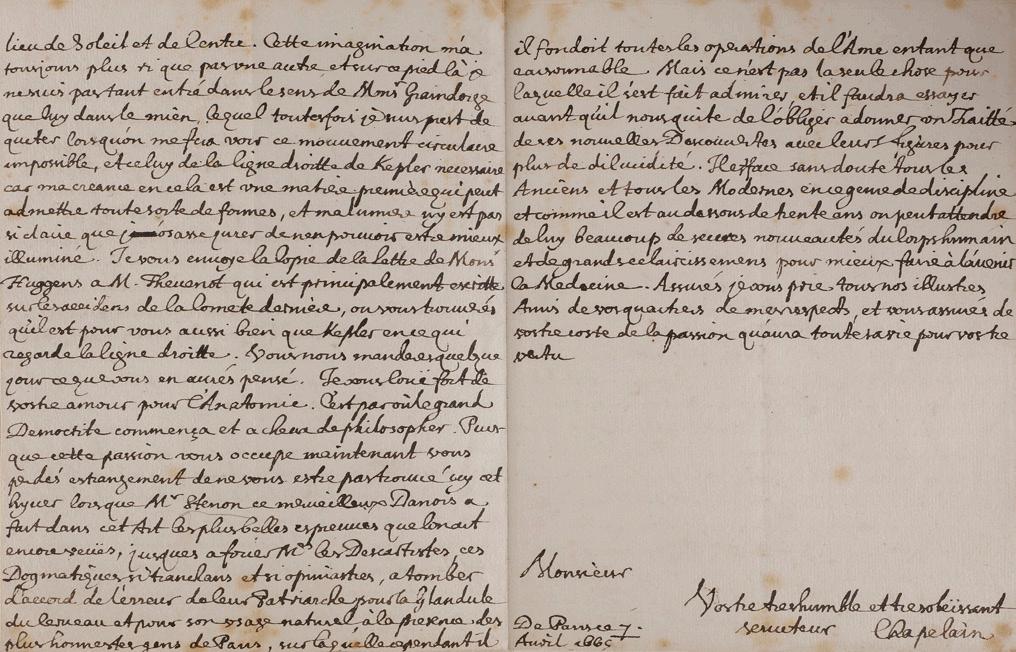 lieu de Soleil et de Centre. Cette imagination m'a
tousjours plus ri que pas vne autre et sur ce pied là je
ne suis pas tant entré dans le sens de Mons.r Graindorge
que luy dans le mien, lequel toutesfois je suis prest de
quiter lorsqu'on me fera voir ce mouvement circulaire
impossible, et celuy de la ligne droitte de Kepler necessaire
car ma creance en cela est vne matiere premiere qui peut
admettre toute sorte de formes, et ma lumiere n'y est pas
si claire que j'osasse jurer de n'en pouvoir estre mieux
illuminé. Je vous envoye la Copie de la Lettre de Mons.r
Huggens a M. Thevenot qui est principalement escritte
sur les accidens de la Comete derniere, ou vous trouverés
qu'il est pour vous aussi bien que Kepler en ce qui
regarde la ligne droitte. Vous nous manderes quelque
jour ce que vous en aurés pensé. Je vous louë fort de
vostre amour pour l'Anatomie. C'est par où le grand
Democrite commença et acheva de philosopher. Puis
que cette passion vous occupe maintenant vous
perdés estrangement de ne vous estre pas trouvé icy cet
hyver lorsque M.r Stenon ce merveilleux Danois a
fait dans cet Art les plus belles espreuves que l'on ait
encore veuës, jusques a forcer M.rs les Descartistes, ces
Dogmatiques si tranchans et si opiniastres, a tomber
d'accord de l'erreur de leur Patriarche pour la Glandule
du cerveau et pour son vsage naturel à la presence des
plus honnestes gens de Paris, sur laquelle cependant il
il fondoit toutes les operations de l'Ame entant que
raisonnable. Mais ce n'est pas la seule chose pour
laquelle il s'est fait admirer et il faudra essayer
auant qu'il nous quite de l'obliger a donner vn Traitté
de ses nouvelles Descouvertes avec leurs figures pour
plus de dilucidité. Il efface sans doute tous les
Anciens et tous les Modernes en ce genre de discipline
et comme il est au dessous de trente ans on peut attendre
de luy beaucoup de nouveautés du Corps humain
et de grands esclaircissemens pour mieux faire à l'avenir
la Medecine. Assurés je vous prie tous nos illustres
Amis de vos quartiers de mes respects, et vous assurés de
vostre coste de la passion qu'aura toute sa vie pour vostre
vertu
Monsieur
Vostre tres humble et tresobeïssant
serviteur Chapelain
De Paris ce 7.
Avril 1665